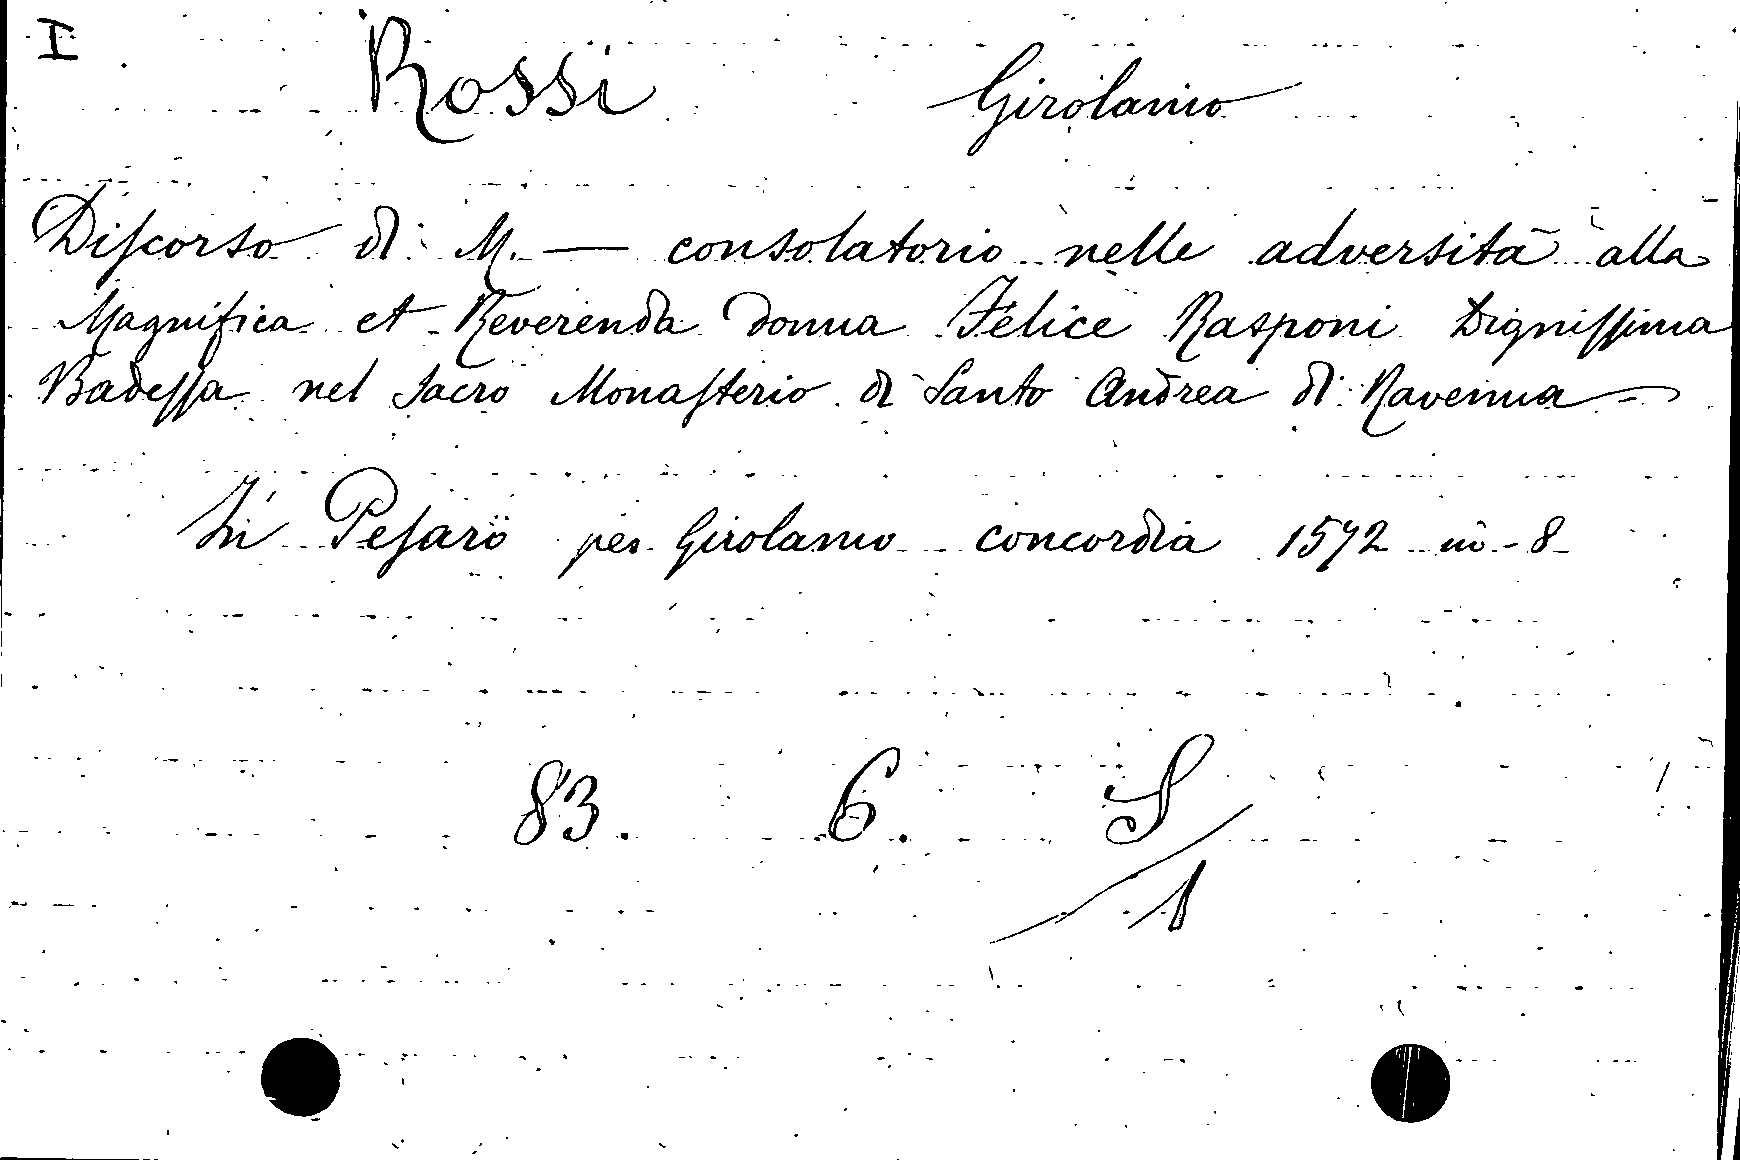 I
Rossi Girolamo
Diſcorso di M. — consolatorio nelle adversità alla
Magnifica et Reverenda donna Felice Rasponi Digniſſima
Badeſſa nel Sacro Monaſterio di Santo Andrea di Ravenna —
In Peſaro per Girolamo concordia 1572 in-8
83. 6. S/1